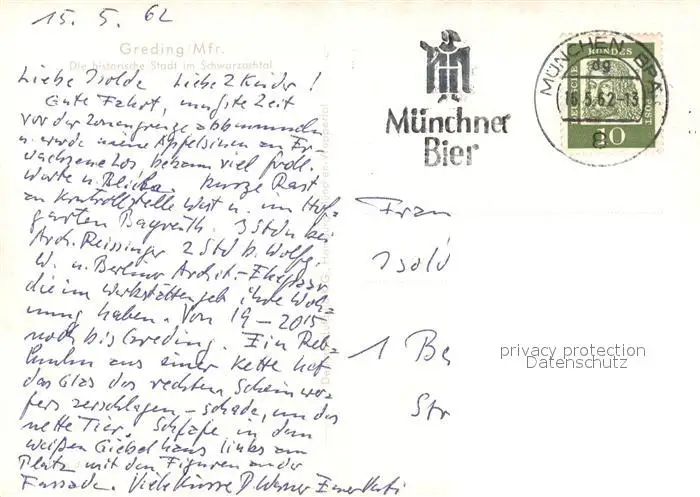 15. 5. 62
Greding Mfr.
Die historische Stadt im Schwarzachtal
Liebe Isolde Liebe 2 Kinder!
Gute Fahrt, musste Zeit
vor der Zonengrenze abbummeln
u. wurde meine Apfelsinen an Er-
wachsene los, bekam viel frdl.
Worte u. Blicke. Kurze Rast
an Kontrollstelle West u. im Hof-
garten Bayreuth. 3 Stdn bei
Arch. Reissinger 2 Std b. Wolfg.
W. u. Berliner Archit.-Ehepaar
die im Werkstättengeb. ihre Woh-
nung haben. Von 19 – 2015
noch bis Greding. Ein Reb-
huhn aus einer Kette hat
das Glas des rechten Scheinwer-
fers zerschlagen – schade, um das
nette Tier. Schlafe in dem
weißen Giebelhaus links am
Platz mit den Figuren an der
Fassade. Viele Küsse Werner
Münchner
Bier
MÜNCHEN
BUNDESPOST
16.5.62-13
dg
8
10
Frau
Isold
1 Be
Str
privacy protection
Datenschutz